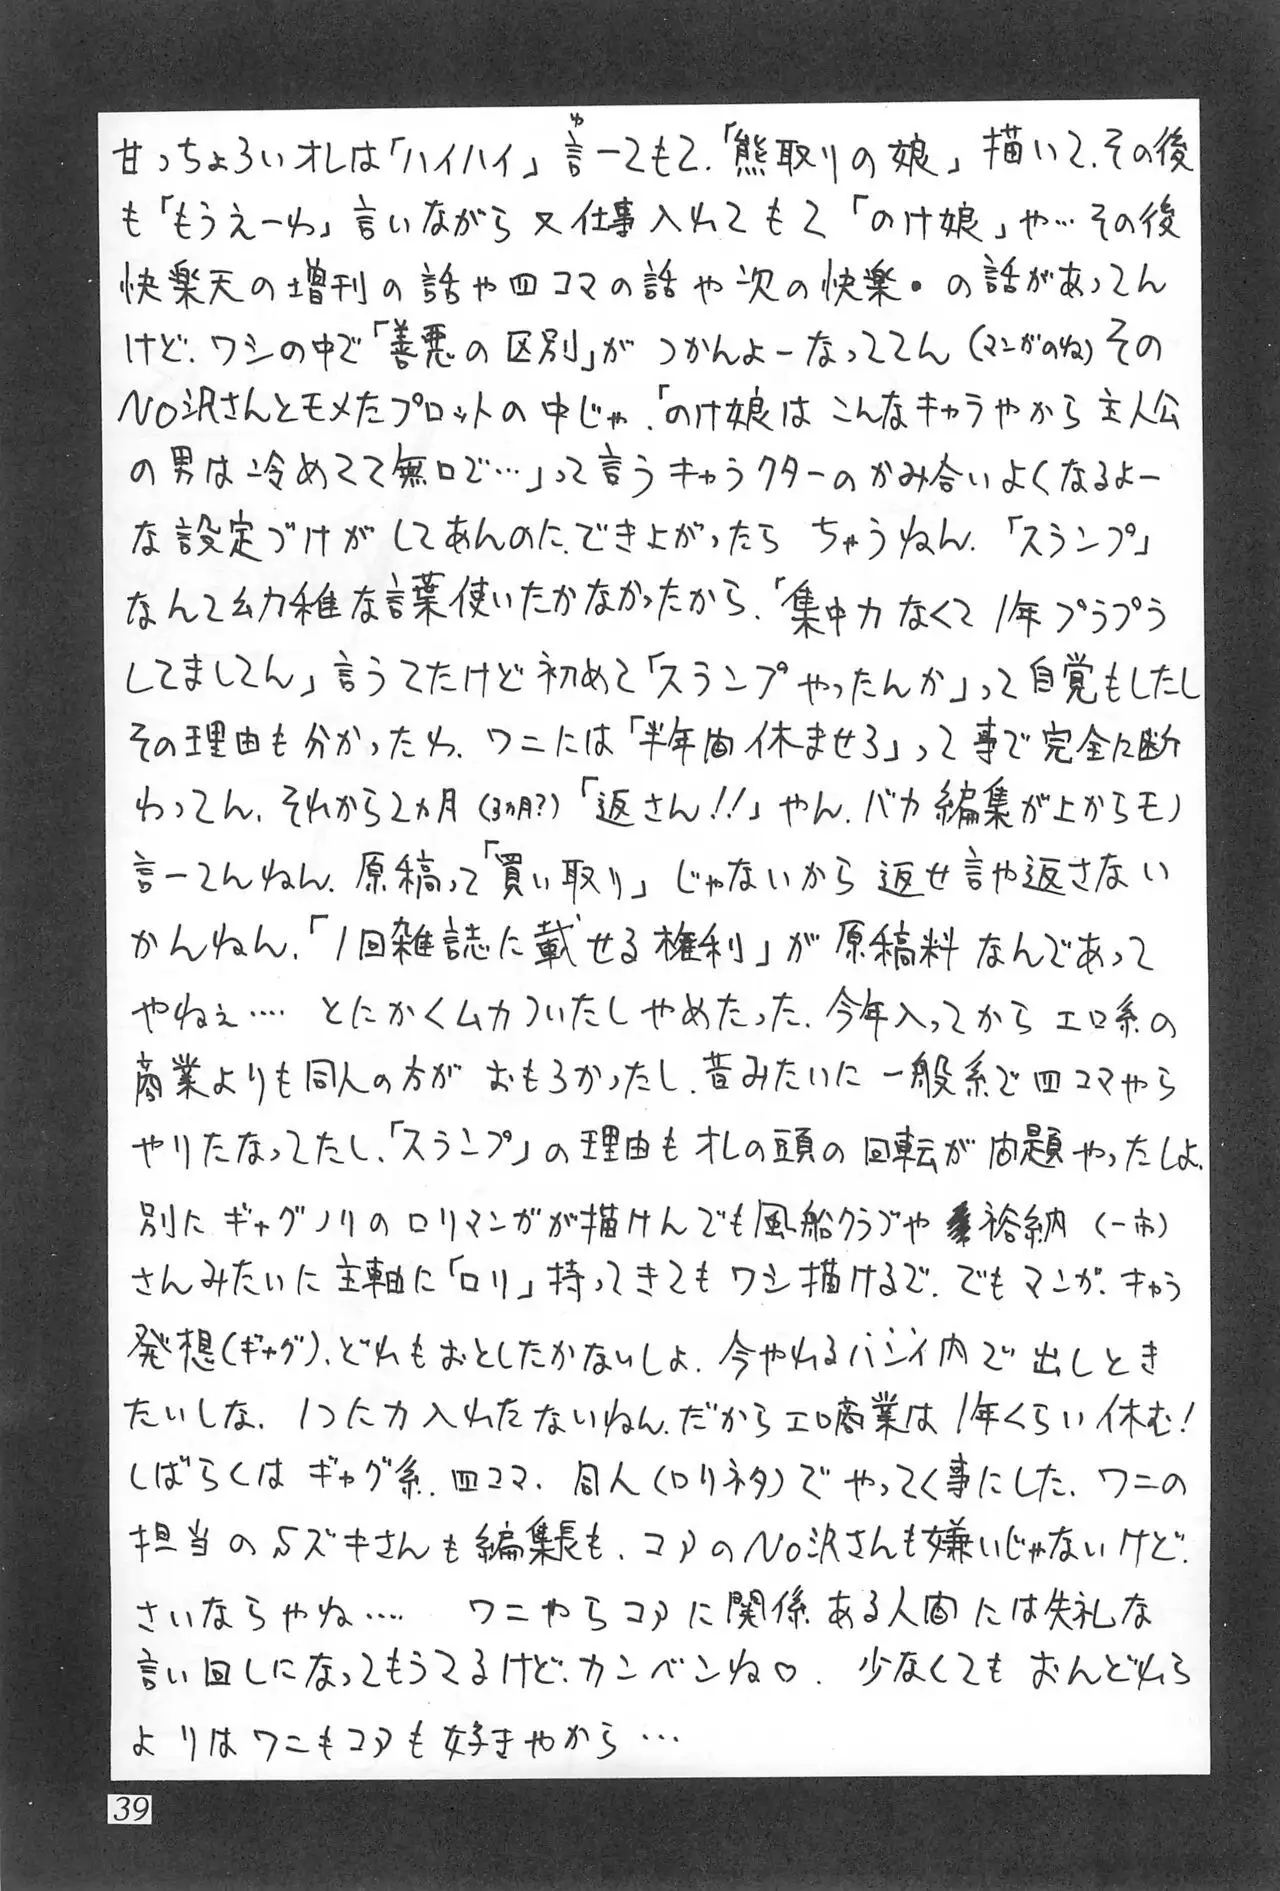 甘っちょろいオレは「ハイハイ」言ーてもて.「熊取りの娘」描いて.その後
も「もうえーわ」言いながら又仕事入れてもて「のけ娘」や…その後
快楽天の増刊の話や四コマの話や次の快楽・の話があってん
けど.ワシの中で「善悪の区別」がつかんよーなっててん(マンガのね)その
NO沢さんとモメたプロットの中じゃ.「のけ娘はこんなキャラやから主人公
の男は冷めてて無口で…」って言うキャラクターのかみ合いよくなるよー
な設定づけがしてあんのに.でき上がったらちゃうねん.「スランプ」
なんて幼稚な言葉使いたかなかったから.「集中力なくて1年プラプラ
してましてん」言うてたけど初めて「スランプやったんか」って自覚もしたし
その理由も分かったわ.ワニには「半年間休ませろ」って事で完全に断
わってん.それから2ヵ月(3ヵ月?)「返さん!!」やん.バカ編集が上からモノ
言ーてんねん.原稿って「買い取り」じゃないから返せ言や返さない
かんねん.「1回雑誌に載せる権利」が原稿料なんであって
やねぇ…. とにかくムカついたしやめたった.今年入ってからエロ系の
商業よりも同人の方がおもろかったし.昔みたいに一般系で四コマやら
やりたなってたし.「スランプ」の理由もオレの頭の回転が問題やったしょ.
別にギャグノリのロリマンガが描けんでも風船クラブや裕納(一市)
さんみたいに主軸に「ロリ」持ってきてもワシ描けるで.でもマンガ.キャラ
発想(ギャグ).どれもおとしたかないしょ.今やれるハンイ内で出しとき
たいしな.1つに力入れたないねん.だからエロ商業は1年くらい休む!
しばらくはギャグ系.四コマ.同人(ロリネタ)でやってく事にした.ワニの
担当のSズキさんも編集長も.コアのNO沢さんも嫌いじゃないけど.
さいならやね…. ワニやらコアに関係ある人間には失礼な
言い回しになってもうてるけど.カンベンね♡.少なくてもおんどれら
よりはワニもコアも好きやから…
39